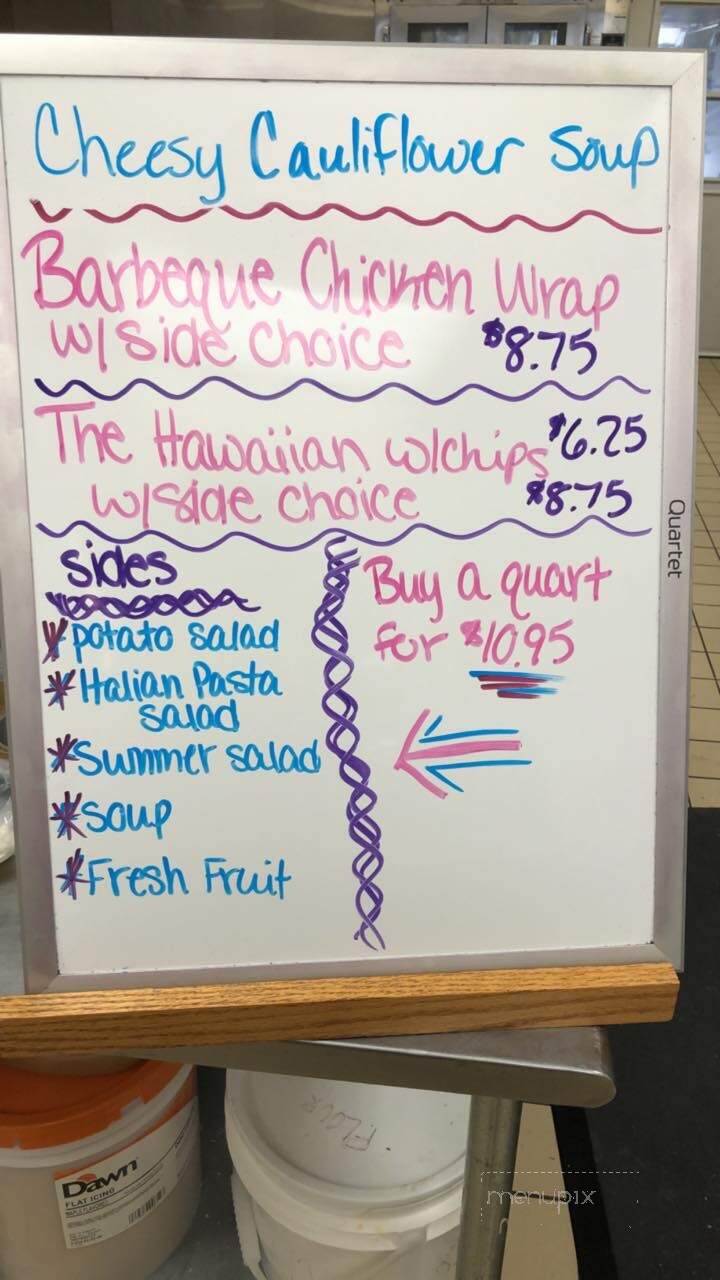 Cheesy Cauliflower Soup
Barbeque Chicken Wrap
w/ side choice $8.75
The Hawaiian w/chips $6.25
w/side choice $8.75
sides
*potato salad
*Italian Pasta
salad
*Summer salad
*soup
*Fresh Fruit
Buy a quart
for $10.95
Quartet
Dawn
FLAT ICING
FLOUR
menupix